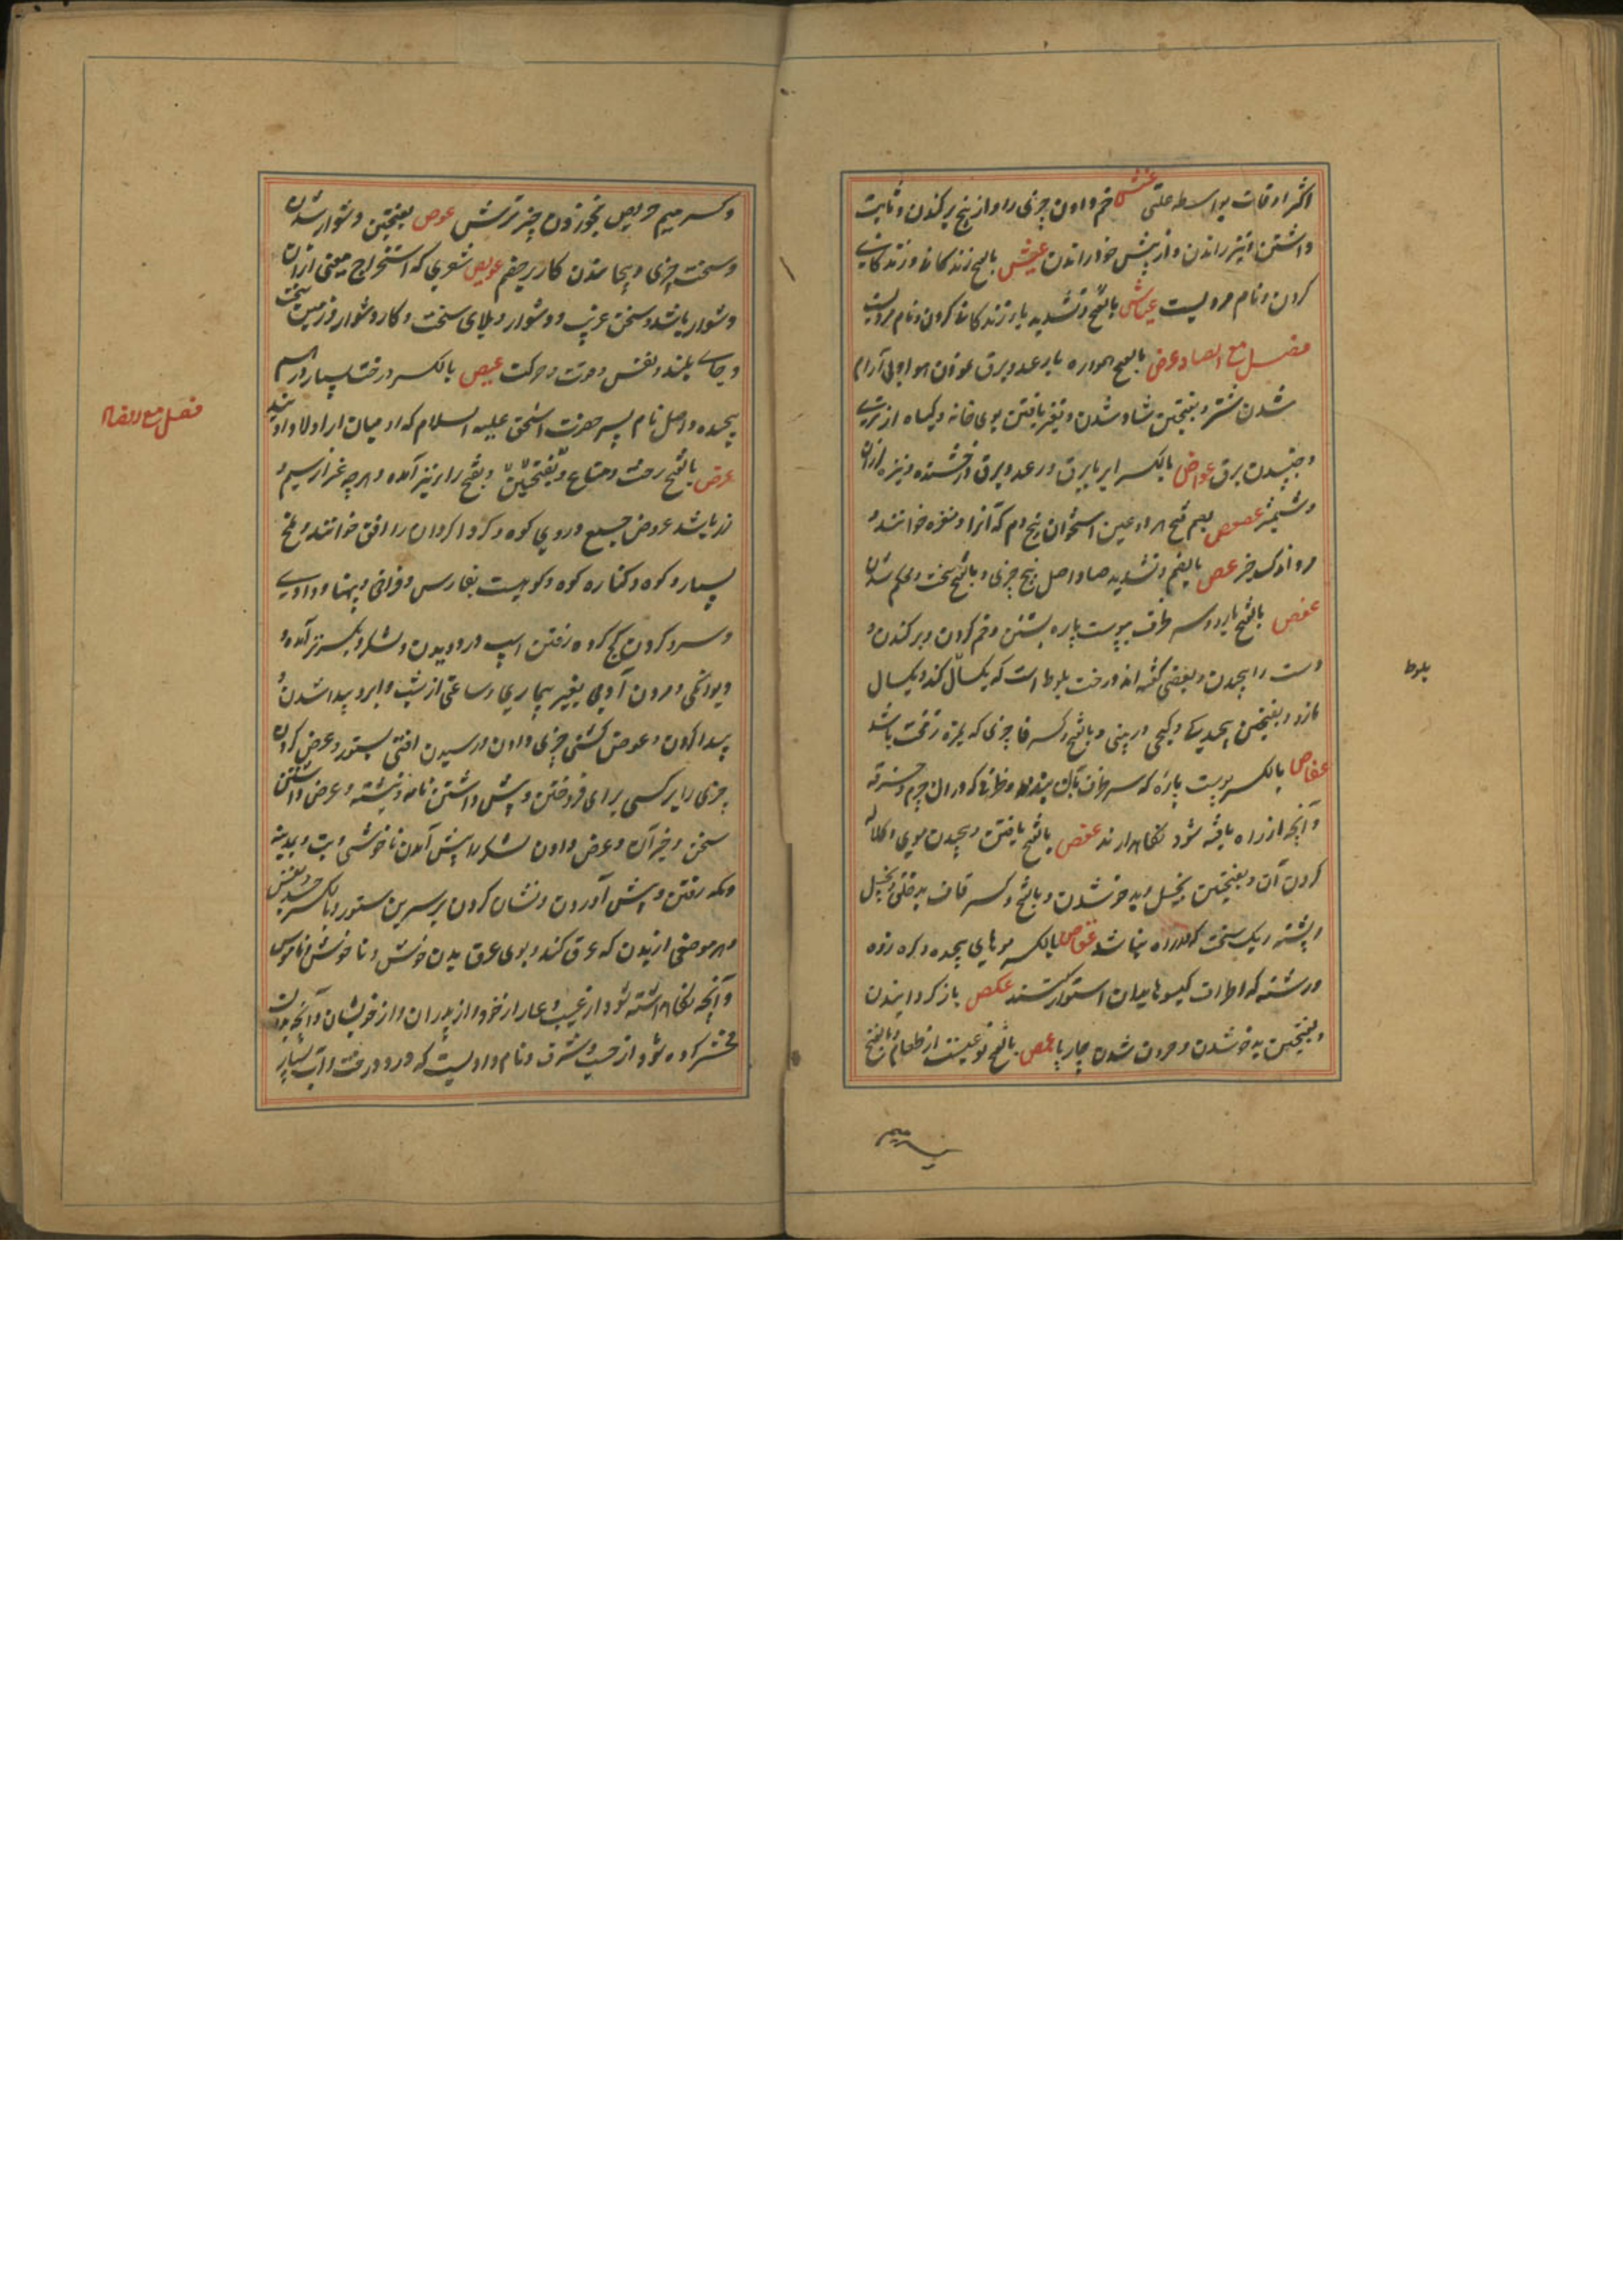 اکثر اوقات بواسطه علتی عنش خم دادن چیزی را و از بیخ برکندن و ثابت
داشتن و تیز راندن و از پیش خود راندن عیش بالفتح زندگانی و زندگانی
کردن و نام مردیست عیاش بالفتح و تشدید یا زندگانی کردن و نام مردیست
فصل مع الصاد عرص بالفتح همواره با رعد و برق
شدن شتر و بفتحتین شاد شدن و تغیر یافتن بوی خانه و گیاه از تری
و جنبیدن برق عراص بالکسر ابر با برق و رعد و برق درخشنده و نیزه لرزان
و شمشیر عصعص بضم فتح هر دو عین استخوان بیخ دم که آنرا خوانند و
مرد اندک خیر عص بالضم و تشدید صاد اصل بیخ چیزی و بالفتح سخت و محکم شدن
عفص بالفتح سر ظرف بپوست پاره بستن و خم کردن و برکندن و
دست را پیچیدن و بعضی گفته اند درخت بلوط است که یکسال کند و یکسال
بلوط
مازو و بفتحتین پیچیدگی و کجی در بینی و بالفتح و کسر فا چیزی که بمزه زفت باشد
عفاص بالکسر پوست پاره که سر ظرف بآن بندند و ظرفی که در آن چرم و خرقه
و آنچه از راه یافته شود نگاهدارند عقص بالفتح بافتن و پیچیدن موی و کلاله
کردن آن و بفتحتین بخیل و بدخو شدن و بالفتح و کسر قاف بدخلق و بخیل
و پشته ریک سخت که در راه نباشد عقاص بالکسر مویهای پیچیده و گره زده
و رشته که اطراف گیسو با میان استوار کنند عکص باز گردانیدن
و بفتحتین بدخو شدن و حرون شدن چارپا عمص بالفتح نوعیست از طعام و بالفتح
و کسر میم
و کسر میم حریص بخوردن چیز ترش عوص بفتحتین دشوار شدن
و سخت چیزی و پیچا شدن کار بر خصم عویص شعری که استخراج معنی از آن
دشوار باشد و سخن غریب و دشوار و بلای سخت و کار دشوار و زمین سخت
و جای بلند و نفس و قوت و حرکت عیص بالکسر درخت بسیار درهم
پیچیده و اصل نام پسر حضرت اسحق علیه السلام که رومیان از اولاد اویند
فصل مع الضاد
عرض بالفتح رخت و متاع و بفتحتین و بفتح را نیز آمده و هر چه غیر از سیم و
زر باشد عروض جمع و روی کوه و کرد کردان را افق خوانند و ملخ
بسیار و کوه و کناره کوه و کوهیست بفارس و فراخی و پهنا و وادی
و سرد کردن کج کرده رفتن اسپ در دویدن و لشکر و بکسر نیز آمده و
دیوانگی و مردن آدمی بغیر بیماری و ساعتی از شب و ابر و پیدا شدن و
پیدا کردن و عوض چیزی دادن و رسیدن آفتی بستور و عرض کردن
چیزی را بر کسی برای فروختن و پیش داشتن نامه و نبشته و عرض داشتن
سخن و خبر آن و عرض دادن لشکر را پیش آمدن ناخوشی و تب و بمدینه
و مکه رفتن و پیش آوردن و نشان کردن بر سرین ستور و بالکسر جسد و نفس
و هر موضعی از بدن که عرق کند و بوی عرق بدن خوش و ناخوش و ناموس
و آنچه نگاهداشته شود از عیب و عار از خود و از پدران و از خویشان و آنچه بدان
مفتخر کرده شود از حسب و شرف و نام وادیست که درو درخت و آب بسیار